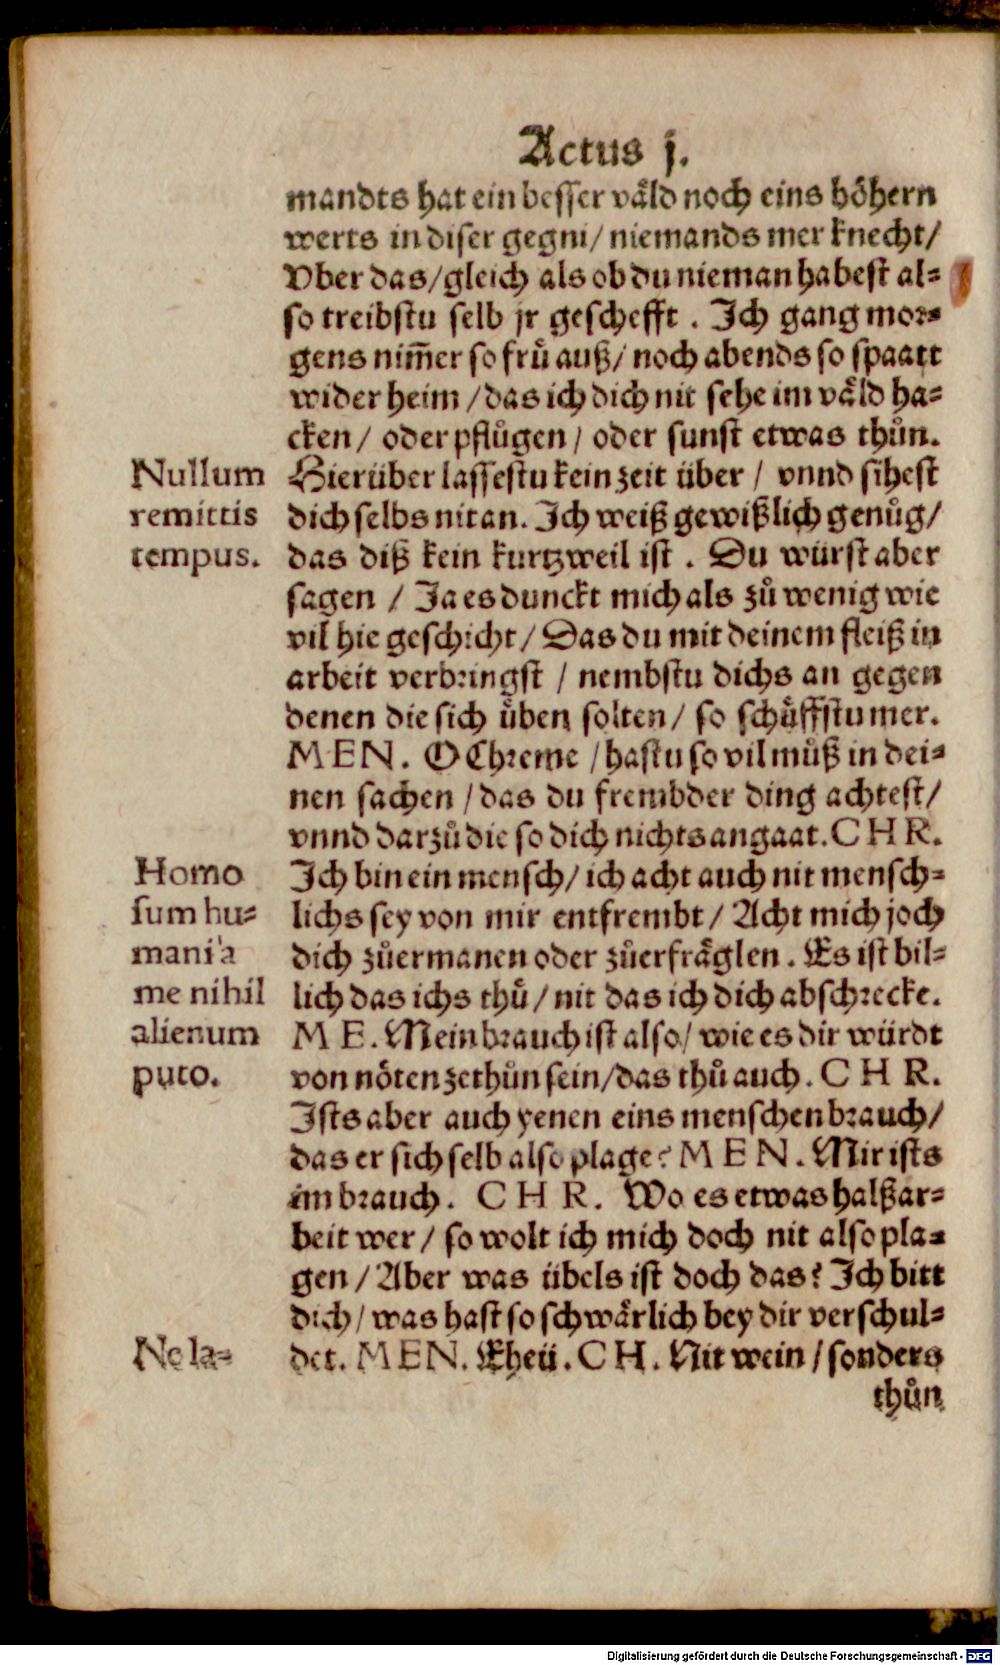 Actus j.
mandts hat ein besser våld noch eins höhern
werts in diser gegni / niemands mer knecht /
Vber das / gleich als ob du nieman habest al⸗
so treibstu selb jr geschefft . Ich gang mor⸗
gens nim̃er so frů auß / noch abends so spaatt
wider heim / das ich dich nit sehe im våld ha⸗
cken / oder pflůgen / oder sunst etwas thůn.
Nullum
remittis
tempus.
Hierüber lassestu kein zeit über / vnnd sihest
dich selbs nit an. Ich weiß gewißlich genůg /
das diß kein kurtzweil ist . Du würst aber
sagen / Ja es dunckt mich als zů wenig wie
vil hie geschicht / Das du mit deinem fleiß in
arbeit verbringst / nembstu dichs an gegen
denen die sich üben solten / so schüffstu mer.
MEN. O Chreme / hastu so vil můß in dei⸗
nen sachen / das du frembder ding achtest /
vnnd darzů die so dich nichts angaat. CHR.
Homo
sum hu⸗
mani a
me nihil
alienum
puto.
Ich bin ein mensch / ich acht auch nit mensch⸗
lichs sey von mir entfrembt / Acht mich joch
dich zůermanen oder zůerfråglen . Es ist bil⸗
lich das ichs thů / nit das ich dich abschrecke.
ME. Mein brauch ist also / wie es dir würdt
von nöten zethůn sein / das thů auch . CHR.
Ists aber auch yenen eins menschen brauch /
das er sich selb also plage? MEN. Mir ists
im brauch . CHR. Wo es etwas halßar⸗
beit wer / so wolt ich mich doch nit also pla⸗
gen / Aber was übels ist doch das? Ich bitt
dich / was hast so schwårlich bey dir verschul⸗
Ne la⸗
det. MEN. Eheü. CH. Nit wein / sonders
thůn
Digitalisierung gefördert durch die Deutsche Forschungsgemeinschaft - DFG